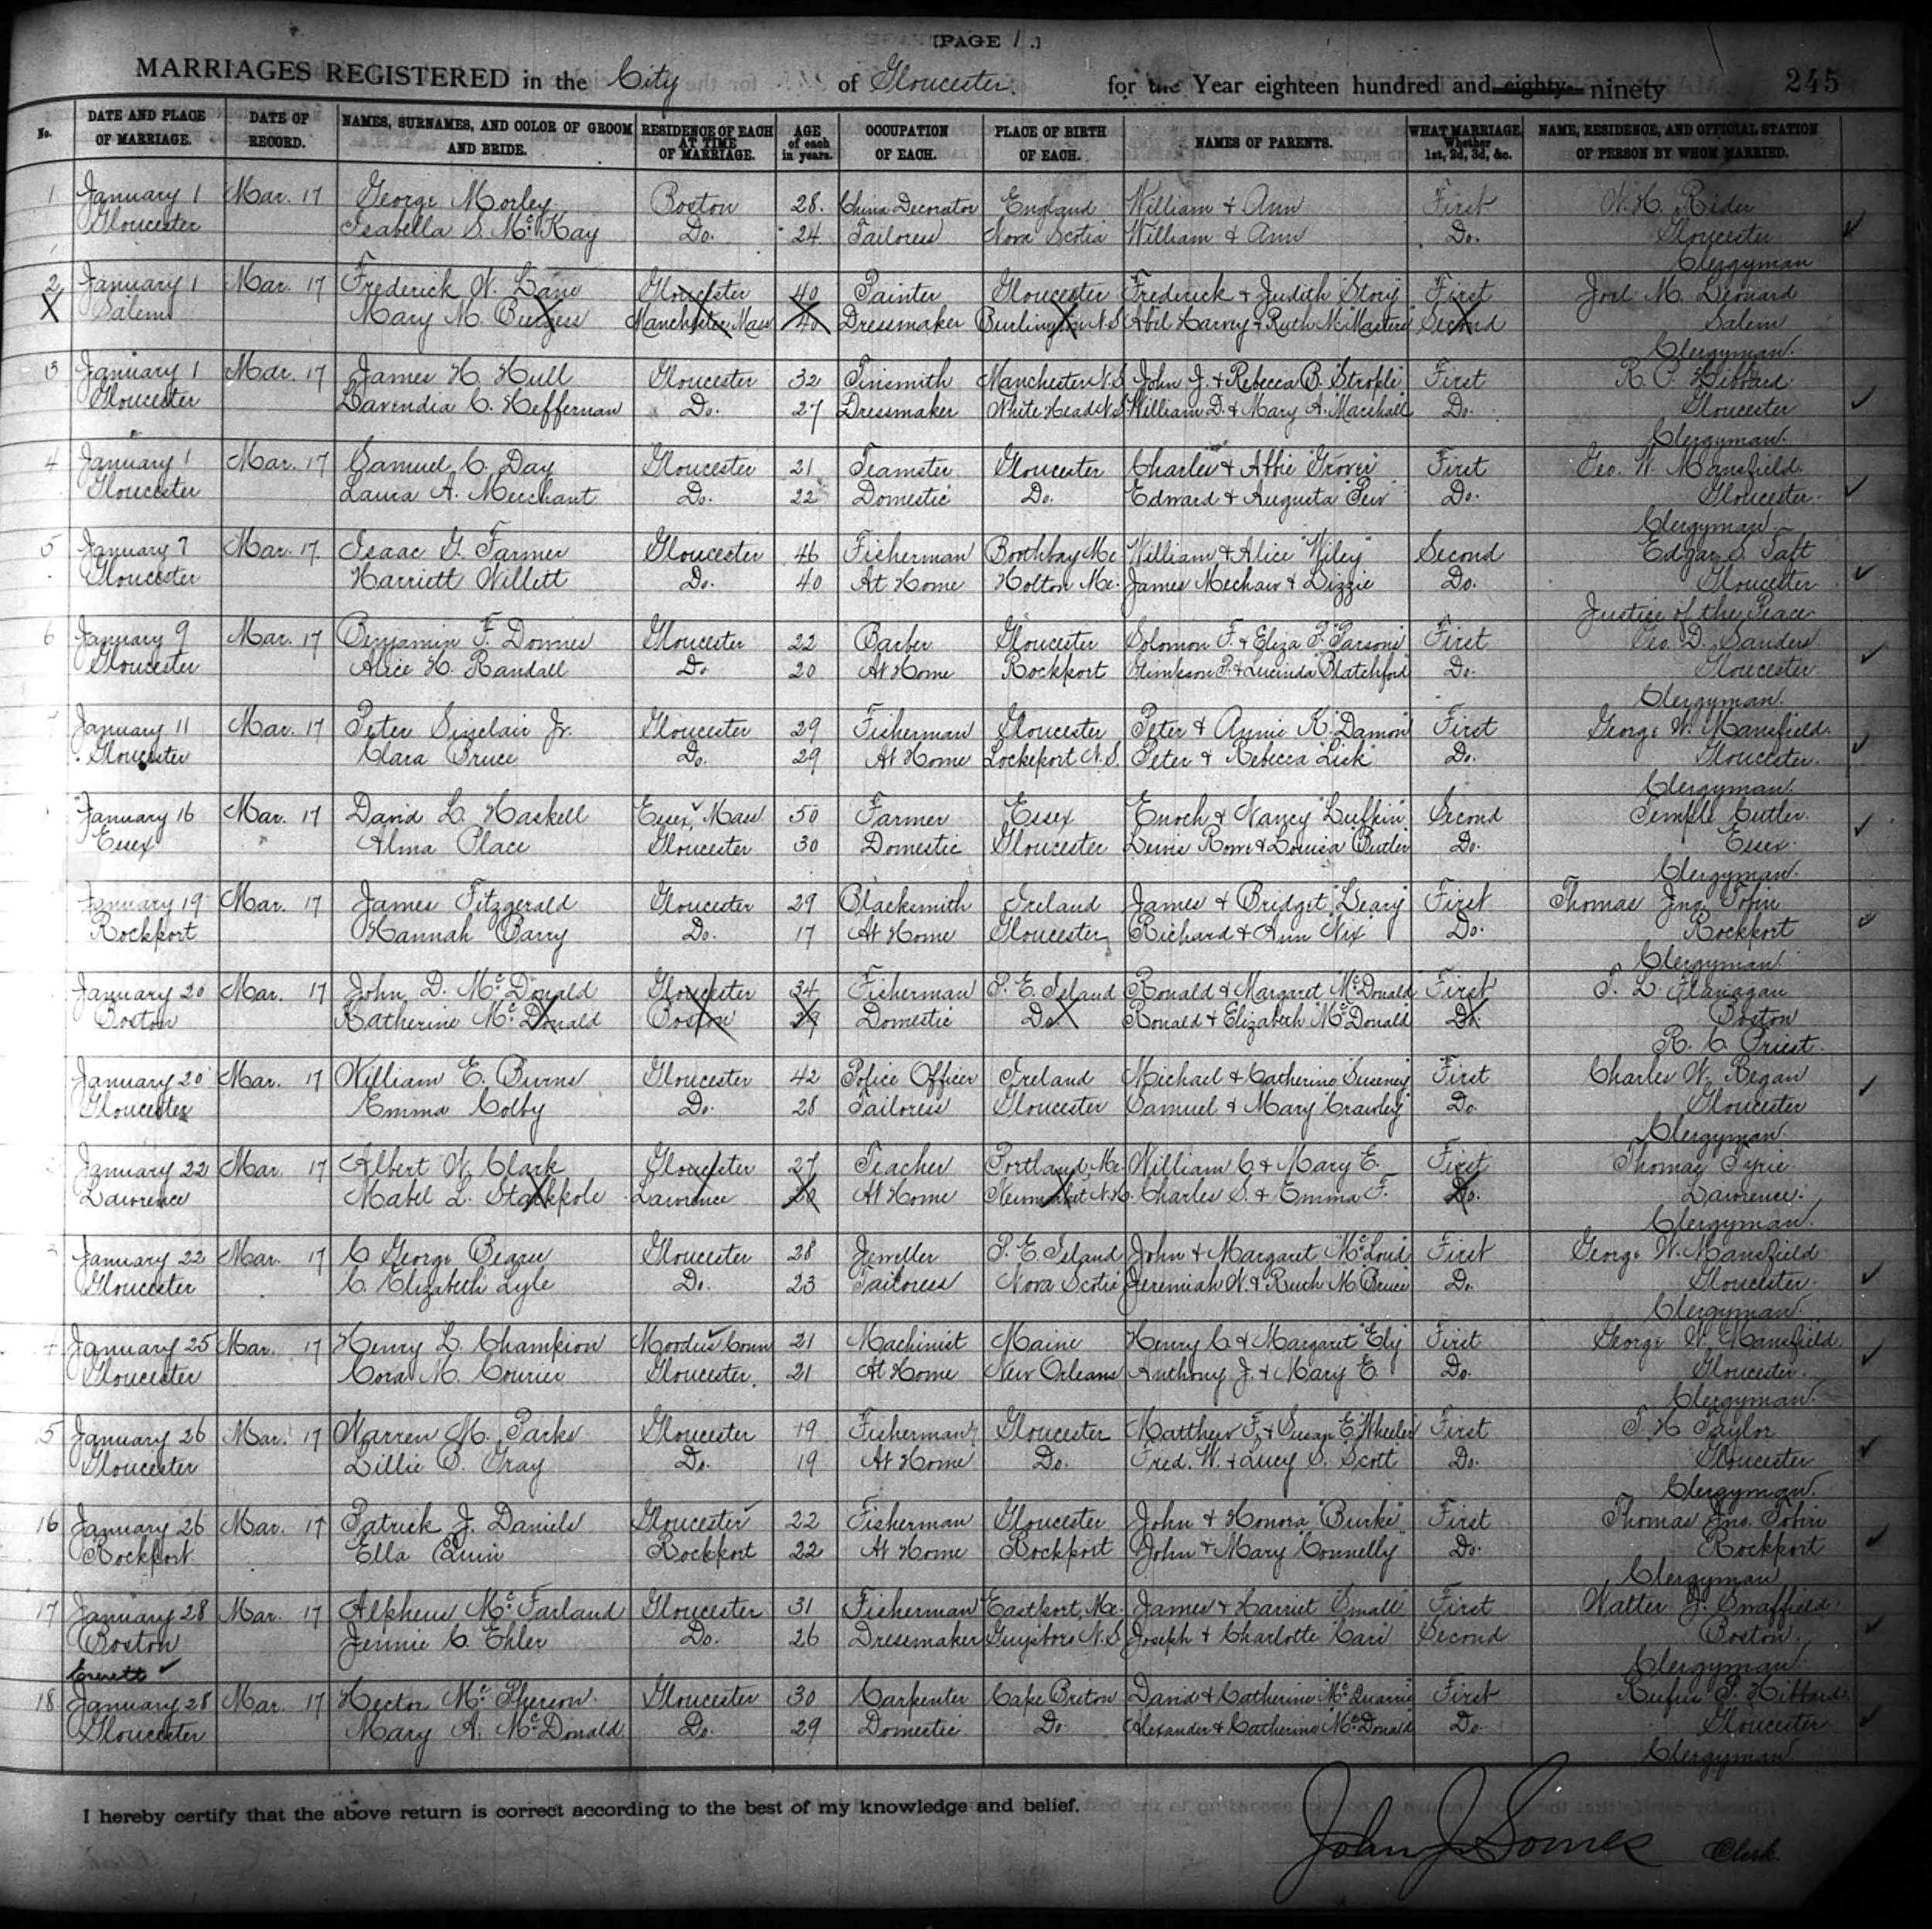 [PAGE 1.]
MARRIAGES REGISTERED in the City of Gloucester for the Year eighteen hundred and eighty- ninety 245
No. DATE AND PLACE OF MARRIAGE. DATE OF RECORD. NAMES, SURNAMES, AND COLOR OF GROOM AND BRIDE. RESIDENCE OF EACH AT TIME OF MARRIAGE. AGE of each in years. OCCUPATION OF EACH. PLACE OF BIRTH OF EACH. NAMES OF PARENTS. WHAT MARRIAGE, Whether 1st, 2d, 3d, &c. NAME, RESIDENCE, AND OFFICIAL STATION OF PERSON BY WHOM MARRIED.
1 January 1 Mar. 17 George Morley Boston 28. China Decorator England William & Ann First W. H. Rider
Gloucester Isabella S. McKay Do. 24 Tailoress Nova Scotia William & Ann Do. Gloucester
Clergyman
2 January 1 Mar. 17 Frederick W. Lane Gloucester 40 Painter Gloucester Frederick & Judith Story First Joel M. Leonard
Salem Mary M. Manchester Mass 40 Dressmaker Burlington N.S. Abil Harvey & Ruth N. Masters Second Salem
Clergyman.
3 January 1 Mar. 17 James H. Hull Gloucester 32 Tinsmith Manchester N.S. John J. & Rebecca B. First R. P. Hibbard
Gloucester Lavendia C. Heffernan Do. 27 Dressmaker White Head N.S. William D. & Mary A. "Marshall" Do. Gloucester
Clergyman.
4 January 1 Mar. 17 Samuel C. Day Gloucester 21 Teamster Gloucester Charles & Abbie "Grover" First Geo. W. Mansfield.
Gloucester Laura A. Merchant Do. 22 Domestic Do. Edward & Augusta "Pew" Do. Gloucester.
Clergyman.
5 January 7 Mar. 17. Isaac G. Farmer Gloucester 46 Fisherman Boothbay Me. William & Alice "Wiley" Second Edgar S. Taft
Gloucester Harriett Willett Do. 40 At Home Holton Me. James Mechaw & Lizzie Do. Gloucester.
Justice of the Peace
6 January 9 Mar. 17 Benjamin F. Gloucester 22 Barber Gloucester Solomon F. & Eliza F. "Parsons" First Geo. D. Sanders
Gloucester Alice H. Randall Do 20 At Home Rockport & Lucinda "Blatchford" Do. Gloucester
Clergyman.
January 11 Mar. 17 Peter Sinclair Jr. Gloucester 29 Fisherman Gloucester Peter & Annie K. "Damon" First George W. Mansfield.
Gloucester Clara Bruce Do. 29 At Home Lockeport N.S. Peter & Rebecca "Lisk" Do. Gloucester.
Clergyman.
January 16 Mar. 17 David L. Haskell Essex, Mass 50 Farmer Essex Enoch & Nancy "Lufkin" Second Temple Cutler.
Essex Alma Place Gloucester 30 Domestic Gloucester Lewis Rowe & Louisa "Butler" Do. Essex.
Clergyman.
January 19 Mar. 17 James Fitzgerald Gloucester 29 Blacksmith Ireland James & Bridget "Leary" First Thomas Jno. Tobin
Rockport Hannah Barry Do. 17 At Home Gloucester Richard & Ann "Nix" Do. Rockport
Clergyman.
January 20 Mar. 17 John D. McDonald Gloucester 34 Fisherman P. E. Island Ronald & Margaret "McDonald" First T. L. Flanagan
Boston Katherine McDonald Boston 29 Domestic Do. Ronald & Elizabeth McDonald Do. Boston
R. C. Priest.
January 20 Mar. 17 William E. Burns Gloucester 42 Police Officer Ireland Michael & Catherine First Charles W. Regan
Gloucester Emma Colby Do. 28 Tailoress Gloucester Samuel & Mary "Crawley" Do Gloucester
Clergyman
January 22 Mar. 17 Albert W. Clark Gloucester 27 Teacher Portland, Me. William C. & Mary E. First Thomas Tyrie
Lawrence Mabel L. Stackpole Lawrence 20 At Home Newmarket, N.H. Charles S. & Emma F. Do. Lawrence.
Clergyman.
January 22 Mar. 17 C. George Gloucester 28 Jeweller P. E. Island John & Margaret "McLoud" First George W. Mansfield
Gloucester C. Elizabeth Lyle Do. 23 Tailoress Nova Scotia Jeremiah W. & Ruth M. "Bruce" Do. Gloucester.
Clergyman.
January 25 Mar. 17 Henry L. Champion Moodus Conn 21 Machinist Maine Henry C. & Margaret "Ely" First George W. Mansfield.
Gloucester Cora M. Courier Gloucester. 21 At Home New Orleans Anthony J. & Mary E. Do. Gloucester.
Clergyman.
5 January 26 Mar. 17 Warren M. Parks Gloucester 19 Fisherman Gloucester Matthew F. & Susan E. "Wheeler" First T. H. Taylor
Gloucester Lillie S. Gray Do. 19 At Home Do. Fred. W. & Lucy S. Scott Do. Gloucester
Clergyman.
16 January 26 Mar. 17 Patrick J. Daniels Gloucester 22 Fisherman Gloucester John & Honora "Burke" First Thomas Jno. Tobin
Rockport. Ella Quin Rockport 22 At Home Rockport John & Mary "Connelly" Do. Rockport
Clergyman
17 January 28 Mar. 17 Alpheus McFarland Gloucester 31 Fisherman Eastport, Me. James & Harriet "Small" First Walter J. Swaffield.
Boston Jennie C. Ehler Do. 26 Dressmaker Guysboro N.S. Joseph & Charlotte Second Boston.
Everett Clergyman.
18 January 28 Mar. 17 Hector McPherson. Gloucester 30 Carpenter Cape Breton David & Catherine "McQuarrie" First Rufus P. Hibbard.
Gloucester Mary A. McDonald Do. 29 Domestic Do. Alexander & Catherine "McDonald" Do. Gloucester
Clergyman.
I hereby certify that the above return is correct according to the best of my knowledge and belief.
John J. Somes Clerk.